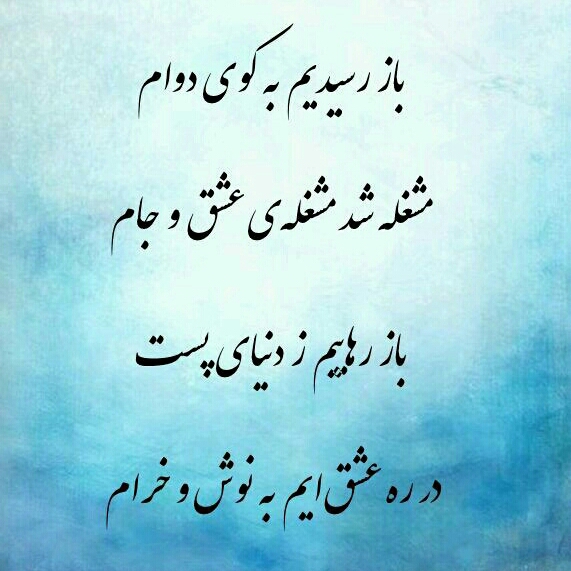 باز رسیدیم به کوی دوام
مشغله شد مشغله‌ی عشق و جام
باز رهاییم ز دنیای پست
در ره عشق‌ایم به نوش و خرام